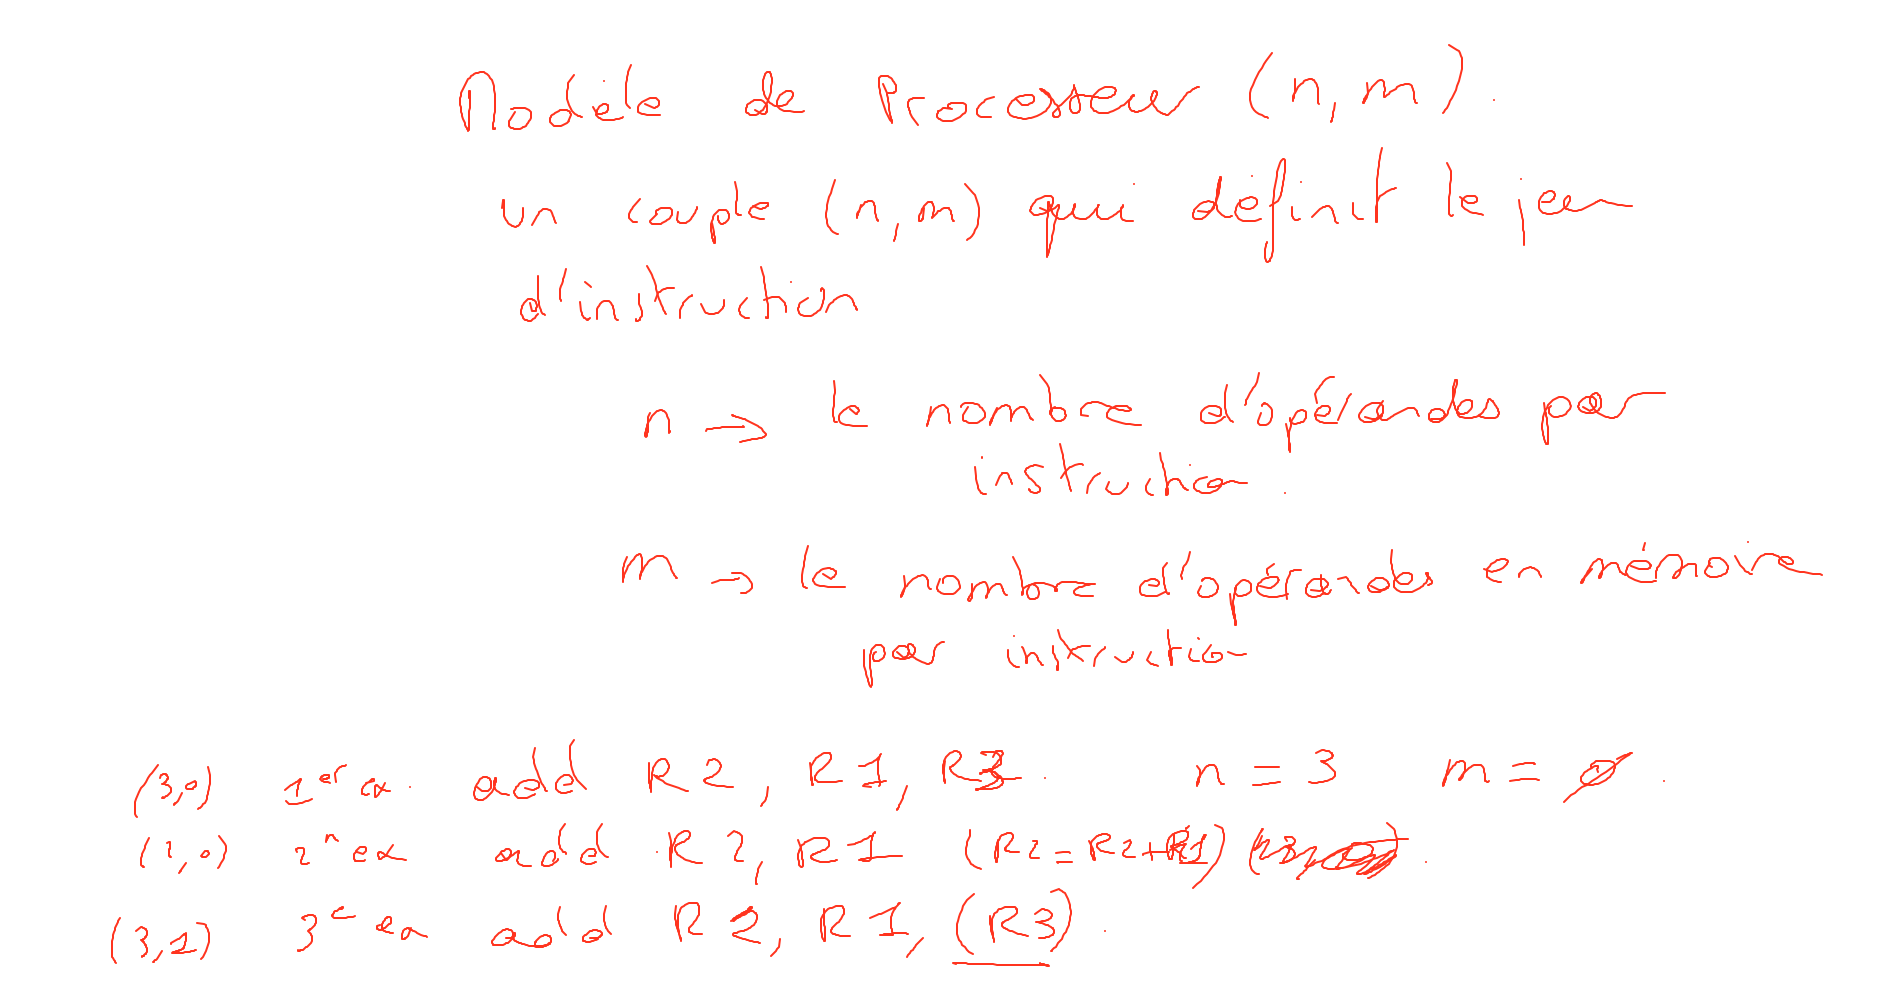 Modèle de Processeur (n, m).
un couple (n, m) qui définit le jeu
d'instruction
n → le nombre d'opérandes par
instruction.
m → le nombre d'opérandes en mémoire
par instruction
(3,0) 1er ex. add R2, R1, R3. n = 3 m = 0.
(2,0) 2n ex add R2, R1 (R2 = R2+R1)
(3,1) 3e ex add R2, R1, (R3).